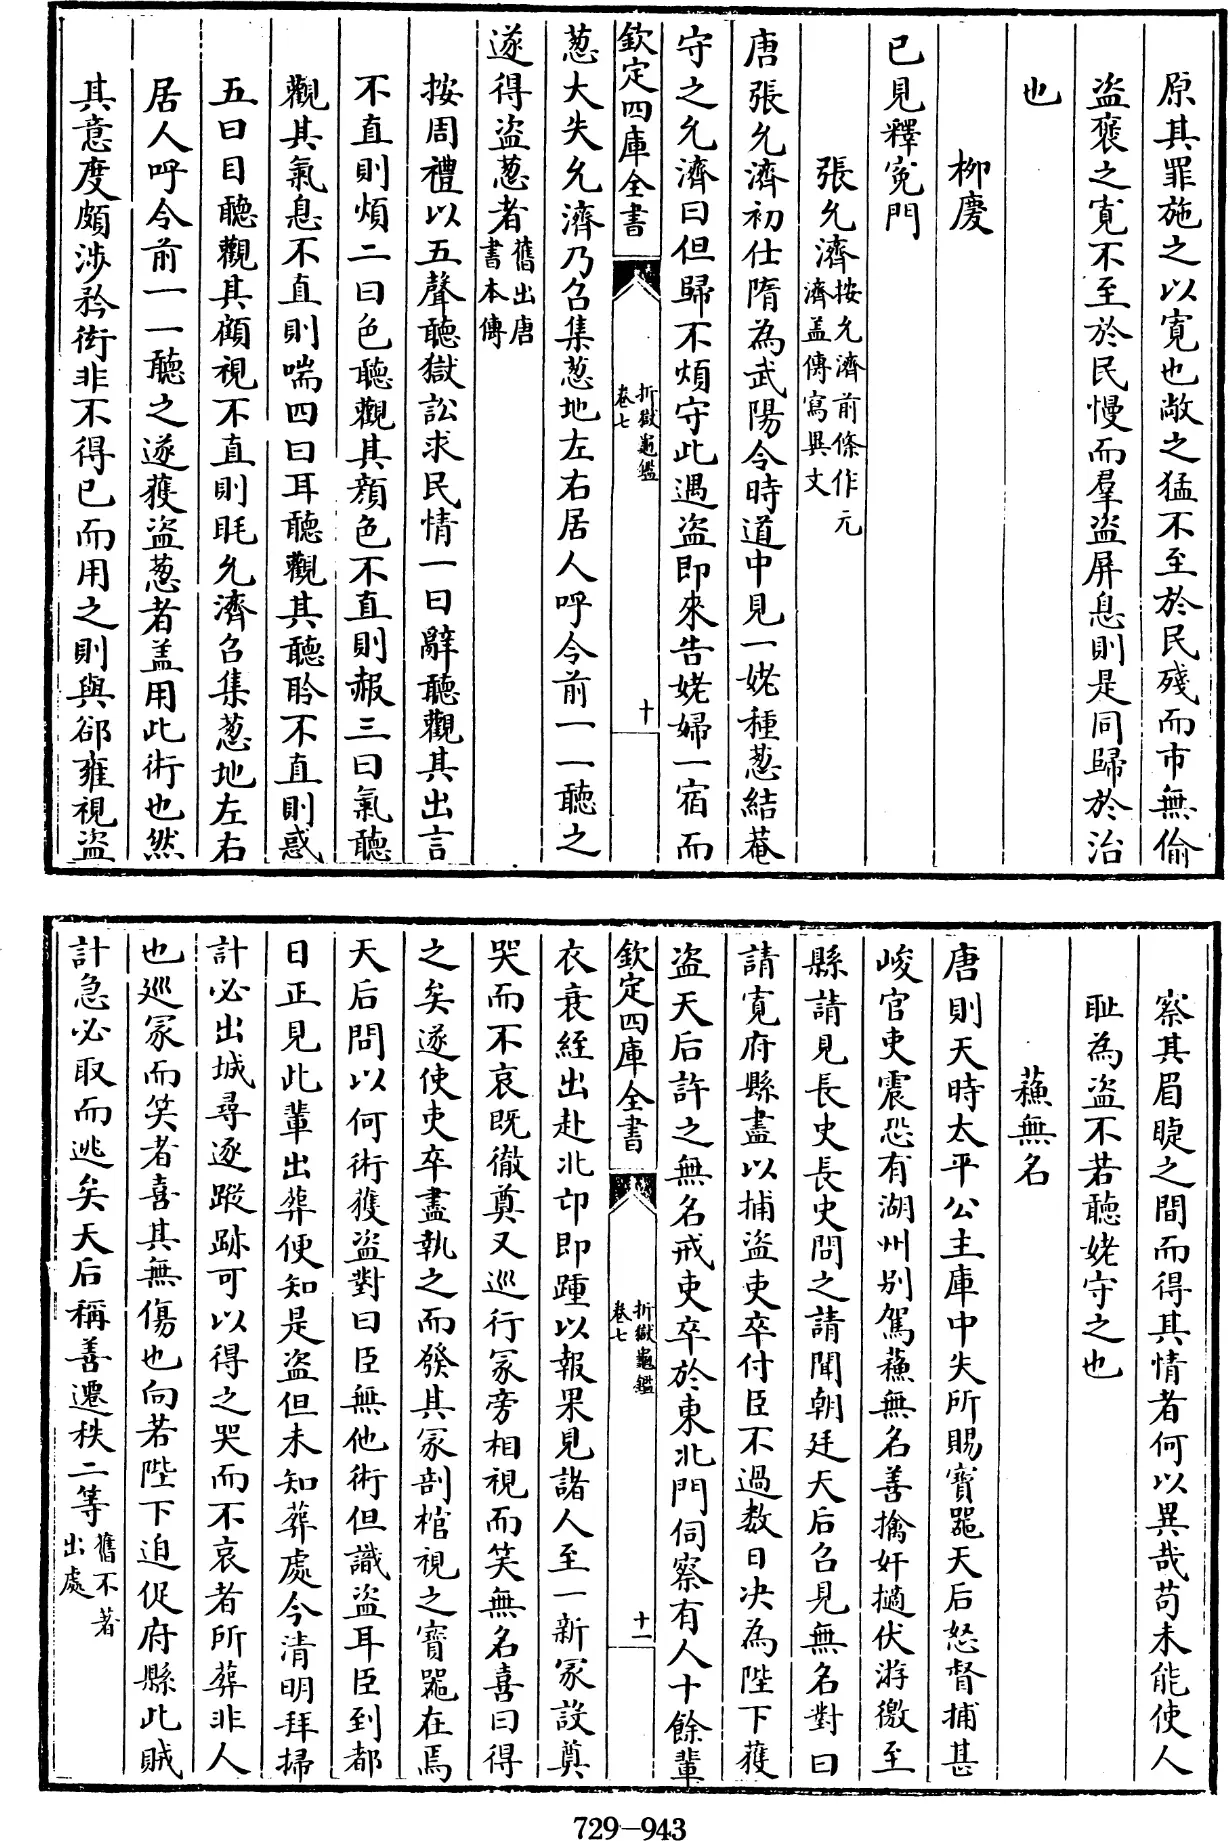 原其罪施之以寛也敞之猛不至於民殘而市無偷
盜褒之寛不至於民慢而羣盜屏息則是同歸於治
也
柳慶
已見釋寃門
張允濟按允濟前條作元濟盖傳寫異文
唐張允濟初仕隋為武陽令時道中見一姥種葱結菴
守之允濟曰但歸不煩守此遇盜即來告姥婦一宿而
欽定四庫全書 折獄龜鑑卷七 十
葱大失允濟乃召集葱地左右居人呼令前一一聽之
遂得盜葱者舊出唐書本傳
按周禮以五聲聽獄訟求民情一曰辭聽觀其出言
不直則煩二曰色聽觀其顔色不直則赧三曰氣聽
觀其氣息不直則喘四曰耳聽觀其聽聆不直則惑
五曰目聽觀其顧視不直則眊允濟召集葱地左右
居人呼令前一一聽之遂獲盜葱者盖用此術也然
其意度頗涉矜衒非不得已而用之則與郤雍視盜
察其眉睫之間而得其情者何以異哉苟未能使人
耻為盜不若聽姥守之也
蘓無名
唐則天時太平公主庫中失所賜寳噐天后怒督捕甚
峻官吏震恐有湖州别駕蘓無名善擒奸擿伏游徼至
縣請見長史長史問之請聞朝廷天后召見無名對曰
請寛府縣盡以捕盜吏卒付臣不過數日决為陛下獲
盜天后許之無名戒吏卒於東北門伺察有人十餘輩
欽定四庫全書 折獄龜鑑卷七 十一
衣衰絰出赴北邙即踵以報果見諸人至一新冢設奠
哭而不哀既徹奠又巡行冢旁相視而笑無名喜曰得
之矣遂使吏卒盡執之而發其冢剖棺視之寳噐在焉
天后問以何術獲盜對曰臣無他術但識盜耳臣到都
日正見此輩出葬便知是盜但未知葬處今清明拜掃
計必出城尋逐蹤跡可以得之哭而不哀者所葬非人
也巡冢而笑者喜其無傷也向若陛下迫促府縣此賊
計急必取而逃矣天后稱善遷秩二等舊不著出處
729-943